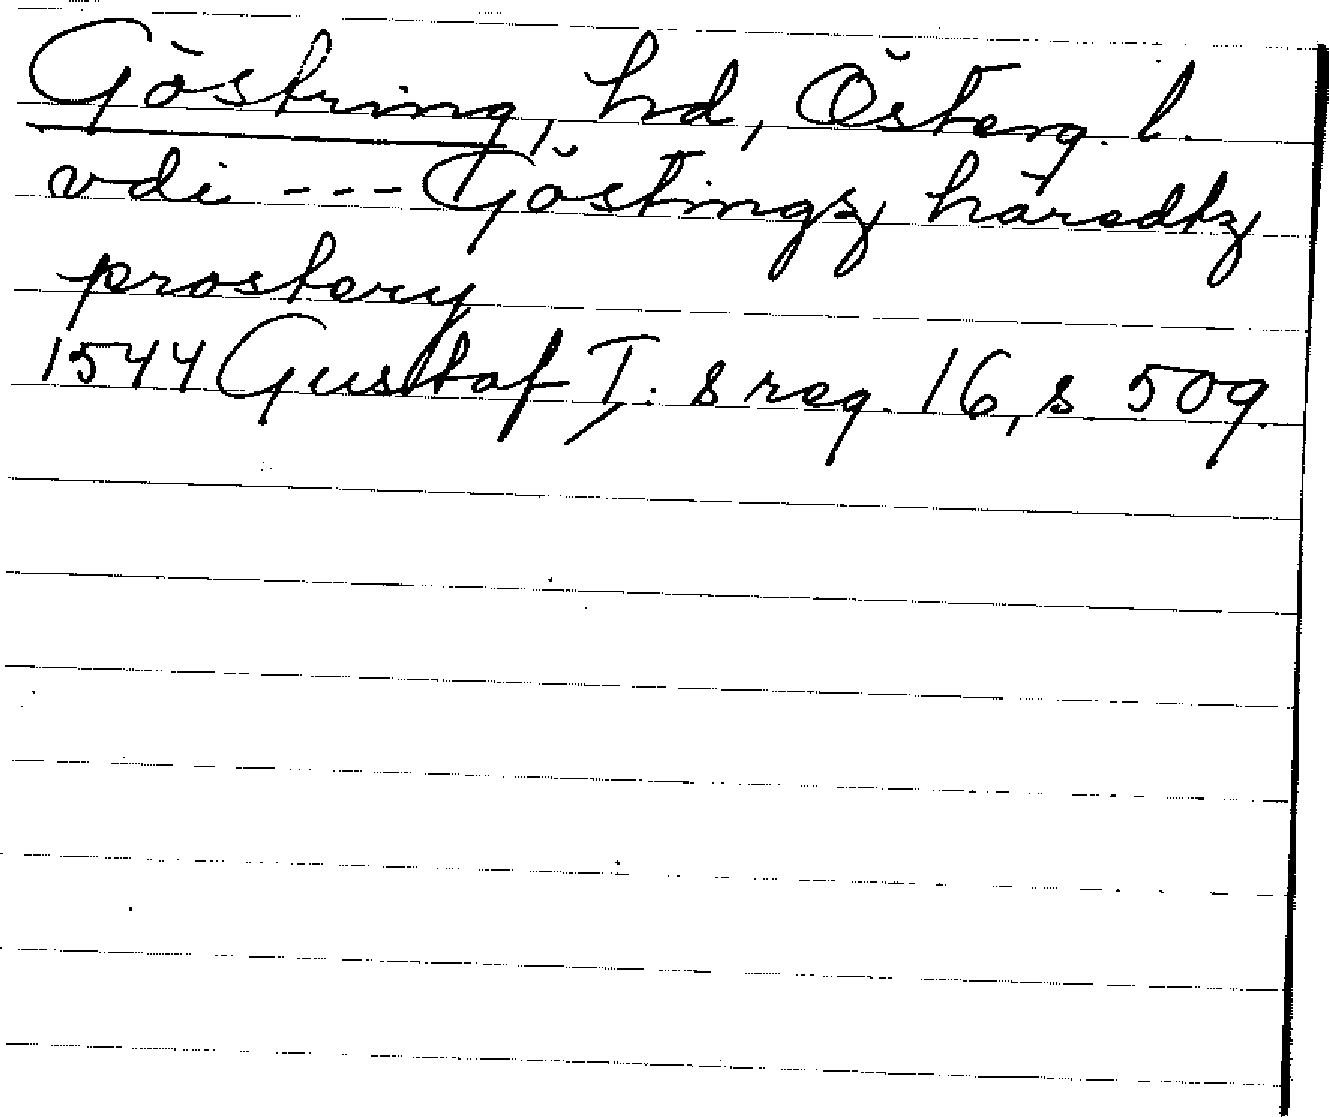 Göstring, hd, Österg. l.
vdi --- Göstingz häredtz
prostery
1544 Gusttaf I: s reg. 16, s 509.